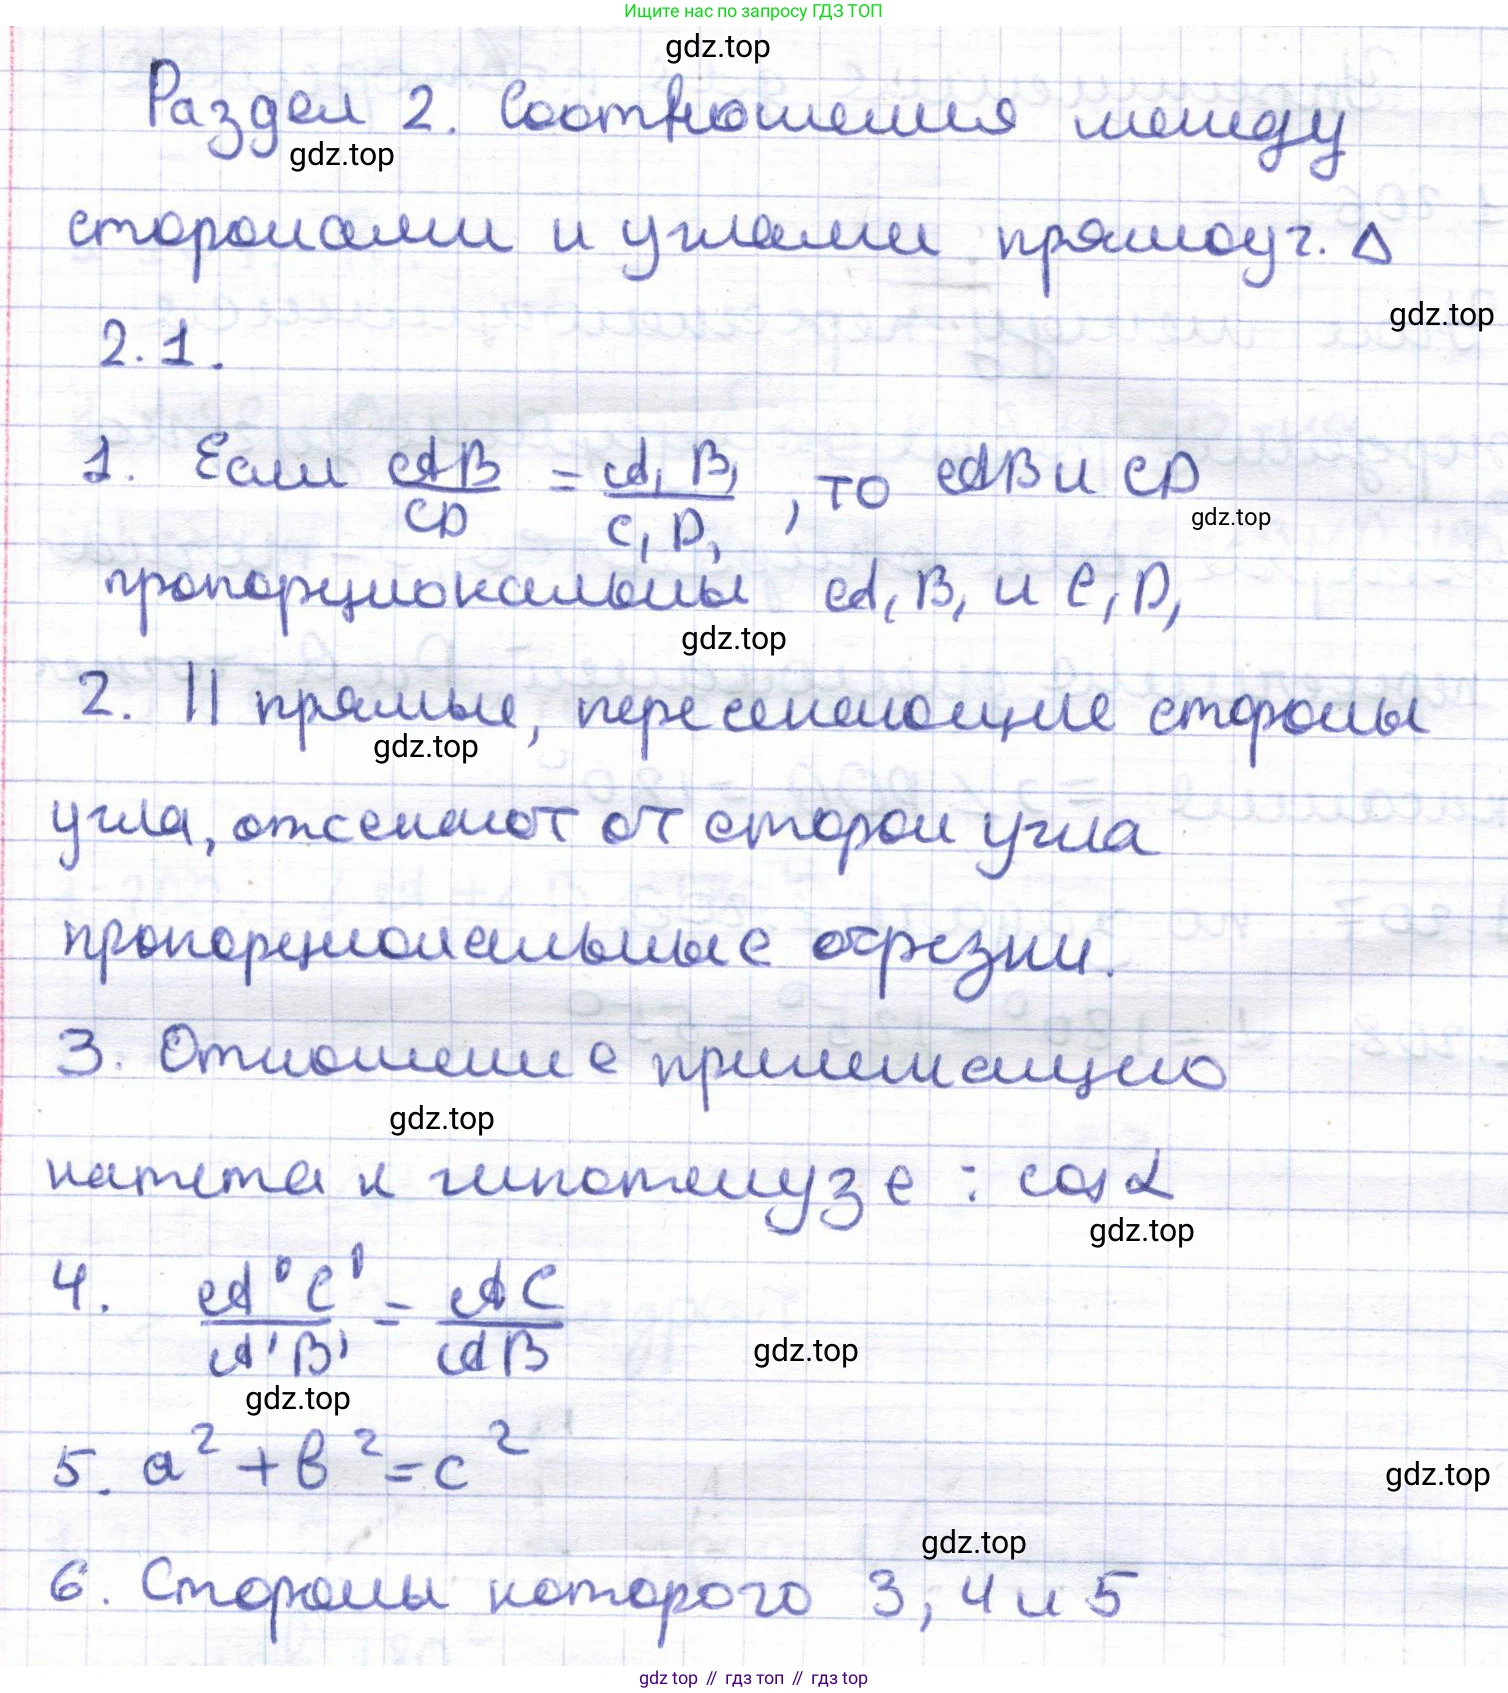 Ищите нас по запросу ГДЗ ТОП
gdz.top
Раздел 2. Соотношения между
gdz.top
сторонами и углами прямоуг. Δ
gdz.top
2.1.
1. Если AB/CD = A₁B₁/C₁D₁, то AB и CD
gdz.top
пропорциональны A₁B₁ и C₁D₁
gdz.top
2. || прямые, пересекающие стороны
gdz.top
угла, отсекают от сторон угла
пропорциональные отрезки.
3. Отношение прилежащего
gdz.top
катета к гипотенузе : cos α
gdz.top
4. A'C'/A'B' = AC/AB
gdz.top
gdz.top
5. a² + b² = c²
gdz.top
gdz.top
6. Стороны которого 3, 4 и 5
gdz top // гдз топ // гдз top